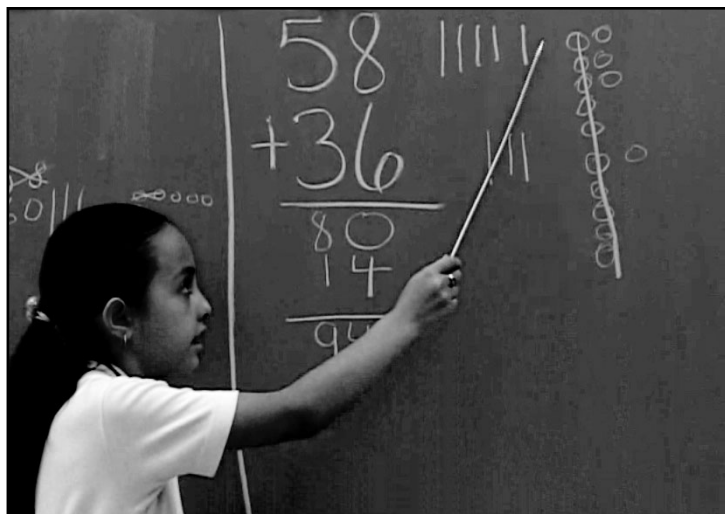 58
+36
80
14
94